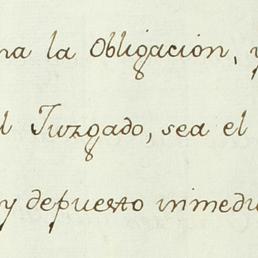 na la Obligación, y
l Juzgado, sea el
y depuesto inmedi